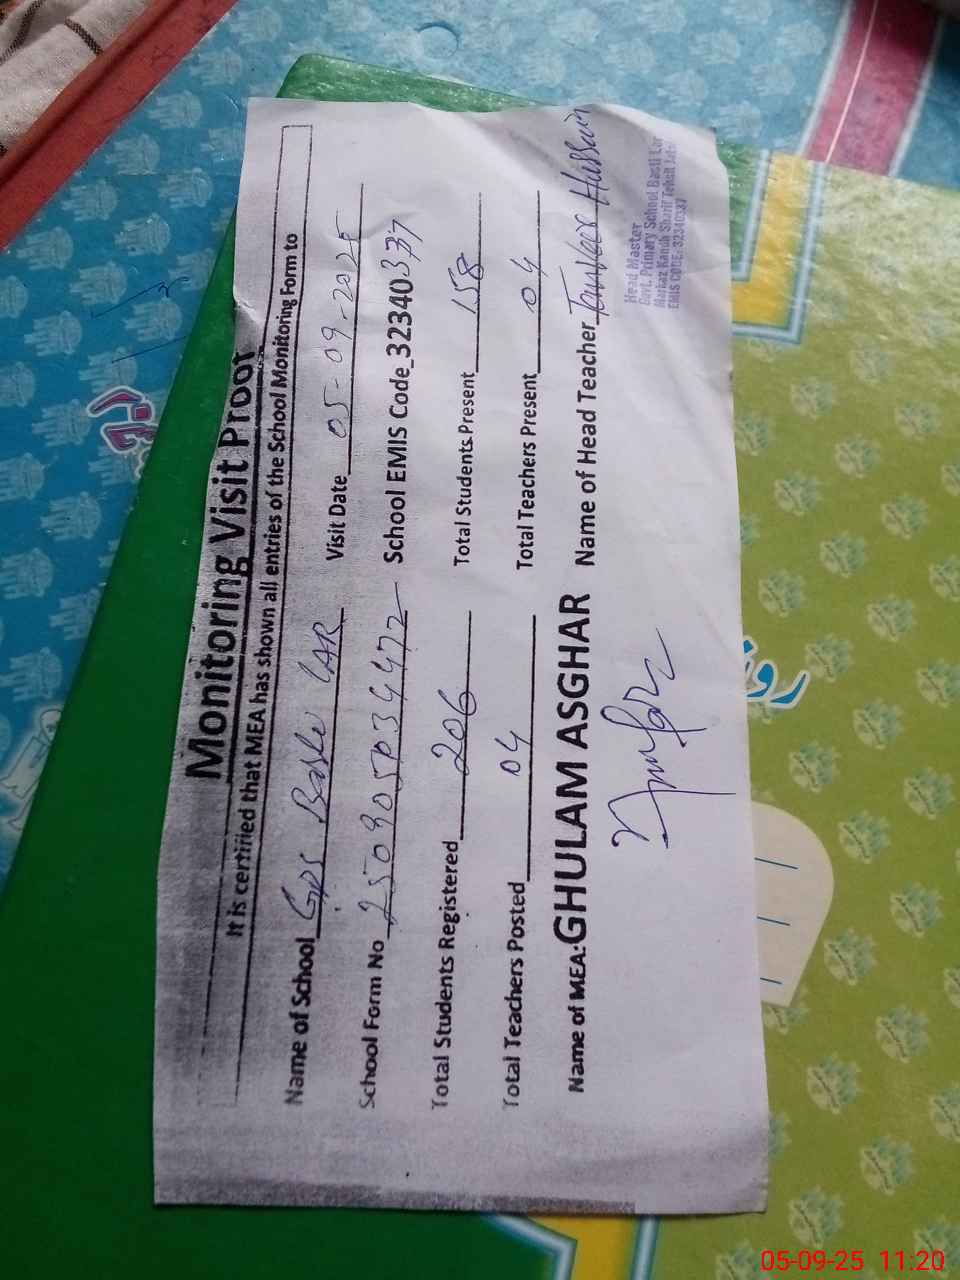 Monitoring Visit Proof
It is certified that MEA has shown all entries of the School Monitoring Form to
Name of School GPS Basti LAR Visit Date 05-09-2025
School Form No 250905034472 School EMIS Code 32340337
Total Students Registered 206 Total Students Present 158
Total Teachers Posted 04 Total Teachers Present 04
Name of MEA: GHULAM ASGHAR Name of Head Teacher Tanveer Hussain
Head Master
Govt. Primary School Basti Lar
Markaz Kanch Sharif Tehsil
EMIS CODE: 32340337
05-09-25 11:20